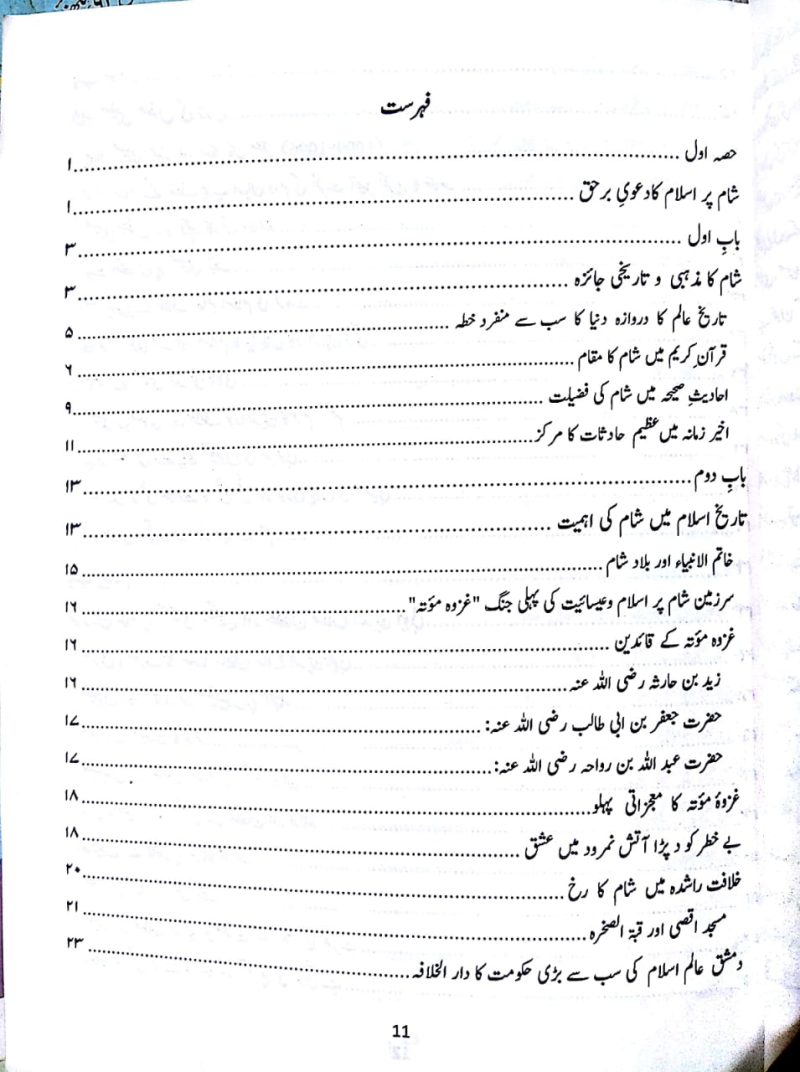 فہرست
حصہ اول ............ ۱
شام پر اسلام کا دعویٰ برحق ............ ۱
بابِ اول ............ ۳
شام کا مذہبی و تاریخی جائزہ ............ ۳
تاریخ عالم کا دروازہ دنیا کا سب سے منفرد خطہ ............ ۵
قرآن کریم میں شام کا مقام ............ ۶
احادیثِ صحیحہ میں شام کی فضیلت ............ ۹
اخیر زمانہ میں عظیم حادثات کا مرکز ............ ۱۱
بابِ دوم ............ ۱۳
تاریخ اسلام میں شام کی اہمیت ............ ۱۳
خاتم الانبیاء اور بلاد شام ............ ۱۵
سرزمین شام پر اسلام وعیسائیت کی پہلی جنگ "غزوہ مؤتہ" ............ ۱۶
غزوہ مؤتہ کے قائدین ............ ۱۶
زید بن حارثہ رضی اللہ عنہ ............ ۱۶
حضرت جعفر بن ابی طالب رضی اللہ عنہ: ............ ۱۷
حضرت عبد اللہ بن رواحہ رضی اللہ عنہ: ............ ۱۷
غزوۂ مؤتہ کا معجزاتی پہلو ............ ۱۸
بے خطر کود پڑا آتش نمرود میں عشق ............ ۱۸
خلافت راشدہ میں شام کا رخ ............ ۲۰
مسجد اقصی اور قبۃ الصخرہ ............ ۲۱
دمشق عالم اسلام کی سب سے بڑی حکومت کا دار الخلافہ ............ ۲۳
11